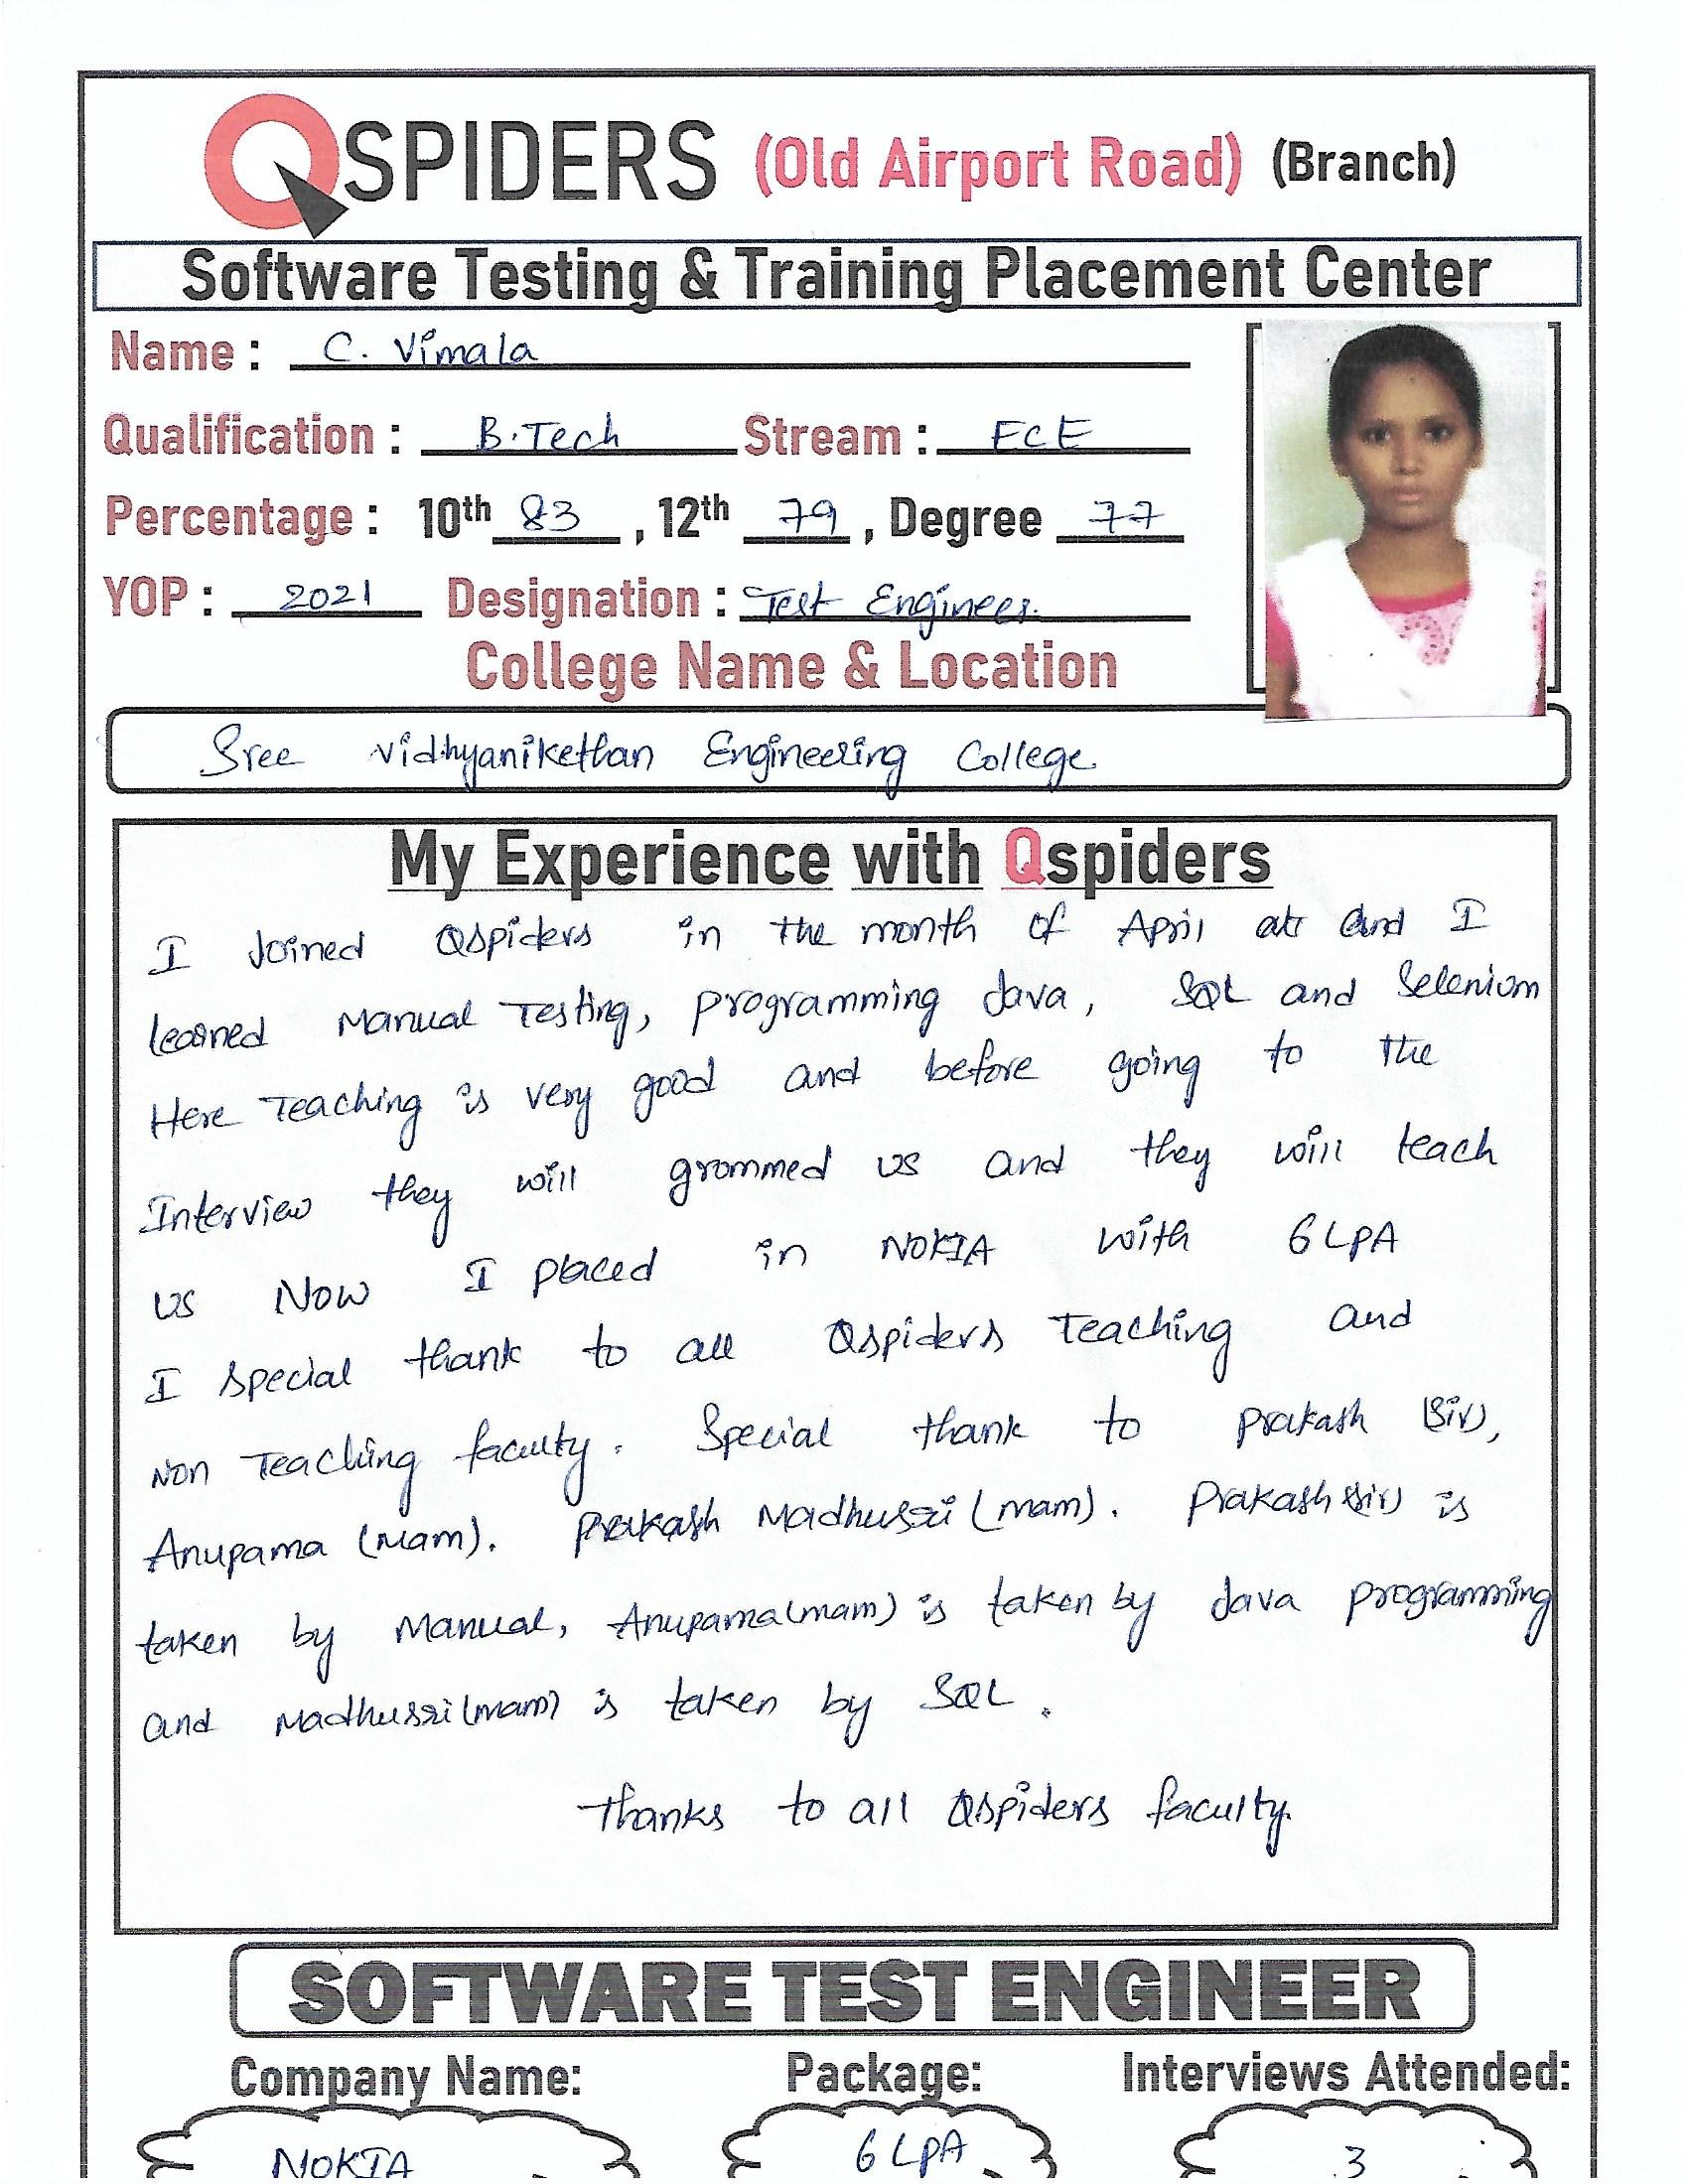 QSPIDERS (Old Airport Road) (Branch)
Software Testing & Training Placement Center
Name : C. Vimala
Qualification : B.Tech Stream : ECE
Percentage : 10th 83 , 12th 79 , Degree 77
YOP : 2021 Designation : Test Engineer.
College Name & Location
Sree vidhyanikethan Engineering College.
My Experience with Qspiders
I Joined Qspiders in the month of April and I
learned Manual Testing, programming Java, SQL and Selenium
Here Teaching is very good and before going to the
Interview they will grommed us and they will teach
us Now I placed in NOKIA with 6 LPA
I special thank to all Qspiders Teaching and
Non Teaching faculty. Special thank to prakash (Sir),
Anupama (Mam). Prakash Madhusri (mam). Prakash (sir) is
taken by Manual, Anupama (mam) is taken by Java programming
and Madhusri (mam) is taken by SQL.
Thanks to all Qspiders faculty.
SOFTWARE TEST ENGINEER
Company Name: Package: Interviews Attended:
NOKIA 6 LPA 3